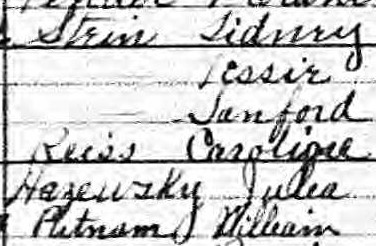 Stein Sidney
Jessie
Sanford
Reiss Caroline
Hazewsky Julea
Putnam William